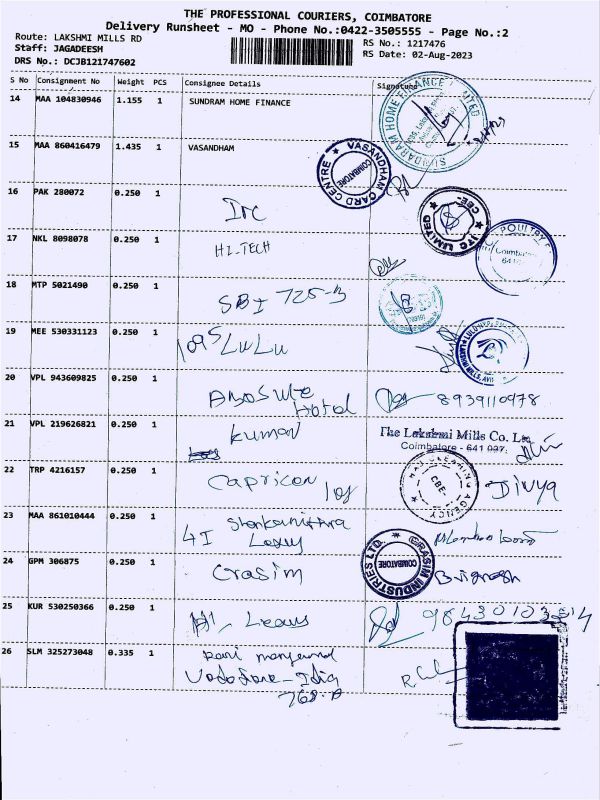 THE PROFESSIONAL COURIERS, COIMBATORE
Delivery Runsheet - MO - Phone No.:0422-3505555 - Page No.:2
Route: LAKSHMI MILLS RD
RS No.: 1217476
Staff: JAGADEESH
RS Date: 02-Aug-2023
DRS No.: DCJB121747602
S No Consignment No Weight PCS Consignee Details Signature
14 MAA 104830946 1.155 1 SUNDRAM HOME FINANCE
SUNDARAM HOME FINANCE LIMITED
15 MAA 860416479 1.435 1 VASANDHAM
VASANDHAM CARD CENTRE
COIMBATORE
16 PAK 280072 0.250 1 ITC
ITC LIMITED
CBE-
17 NKL 8098078 0.250 1 HI.TECH
POULTRY
Coimbatore
641
18 MTP 5021490 0.250 1 SBI 725-B
19 MEE 530331123 0.250 1 LuLu
20 VPL 943609825 0.250 1 Hotel
8939110978
21 VPL 219626821 0.250 1 Kumar
The Lakshmi Mills Co. Ltd
Coimbatore - 641 037.
22 TRP 4216157 0.250 1 Capricon
AGENCY
CBE-
Divya
23 MAA 861010444 0.250 1
24 GPM 306875 0.250 1 Grasim
GRASIM INDUSTRIES LTD.
COIMBATORE
25 KUR 530250366 0.250 1
26 SLM 325273048 0.335 1
Vodafone-Idea
768